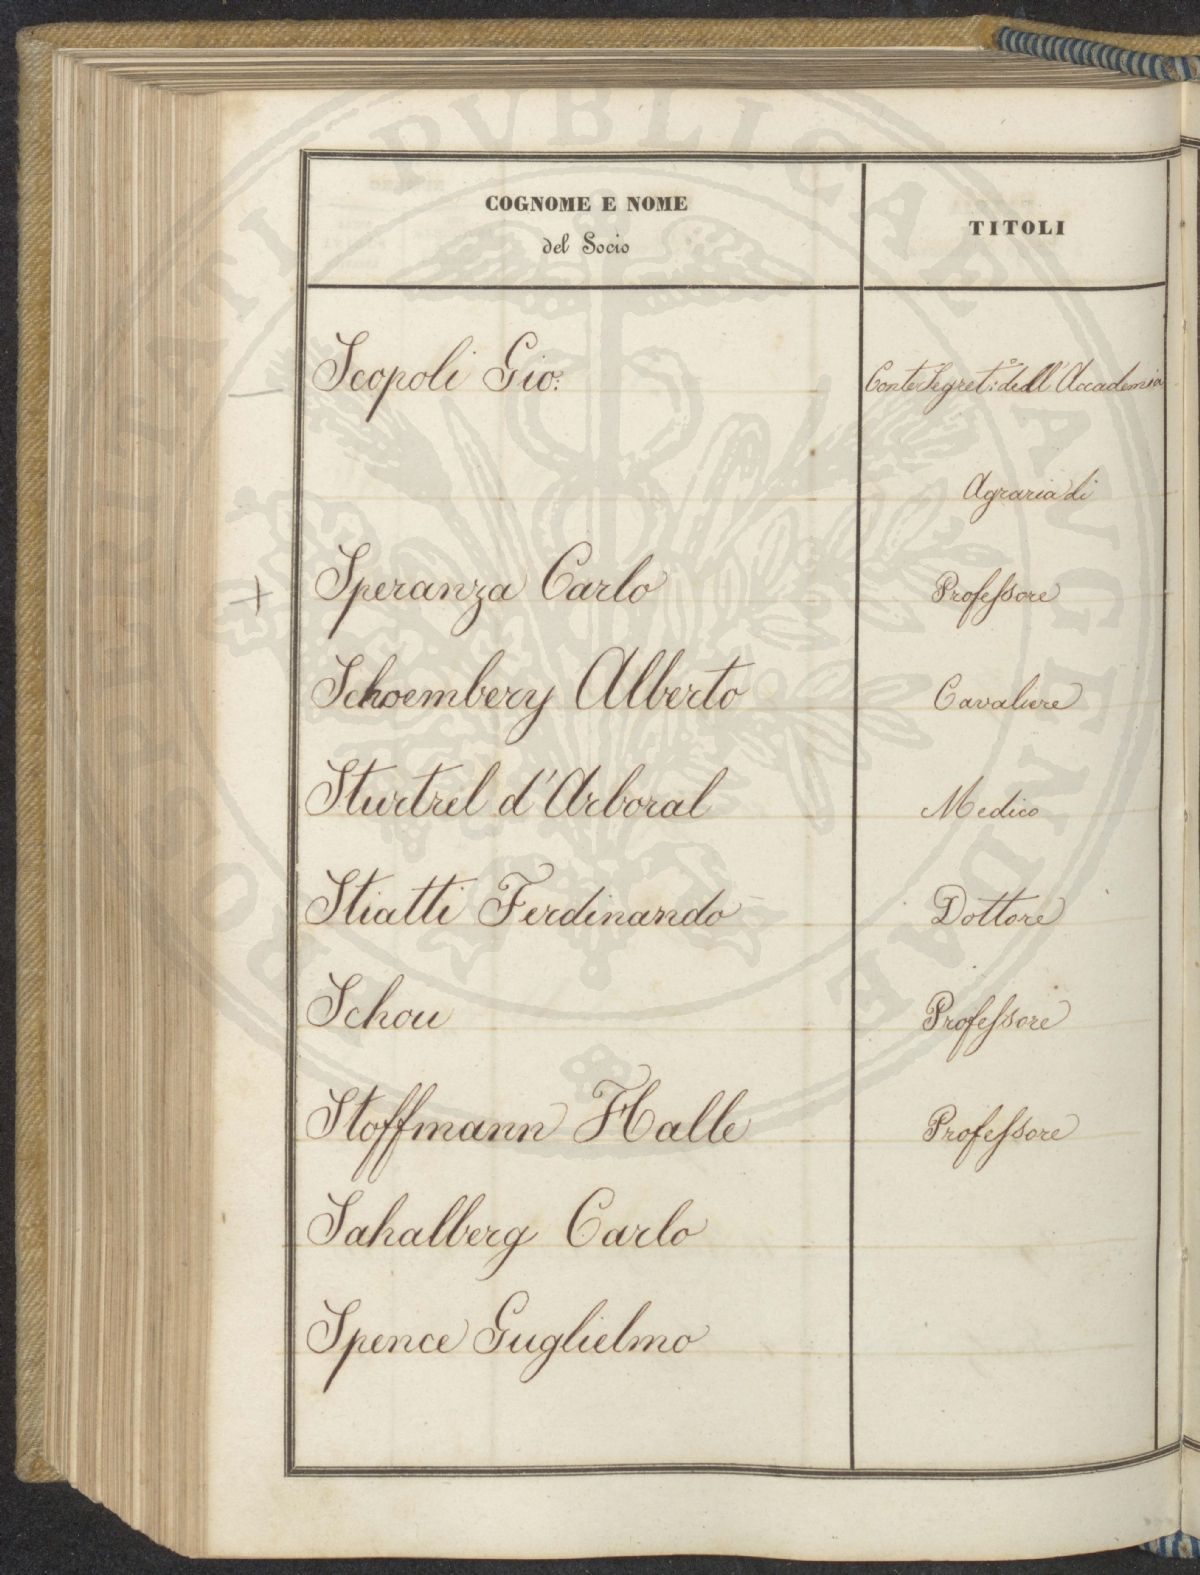 COGNOME E NOME
del Socio
TITOLI
Scopoli Gio:
Conte Segret:º dell'Accademia
Agraria di
Speranza Carlo
Professore
Schoembery Alberto
Cavaliere
Sturtrel d'Arboral
Medico
Stiatti Ferdinando
Dottore
Schou
Professore
Stoffmann Halle
Professore
Sahalberg Carlo
Spence Guglielmo
PROSPERITATI PVBLICAE AVGENDAE